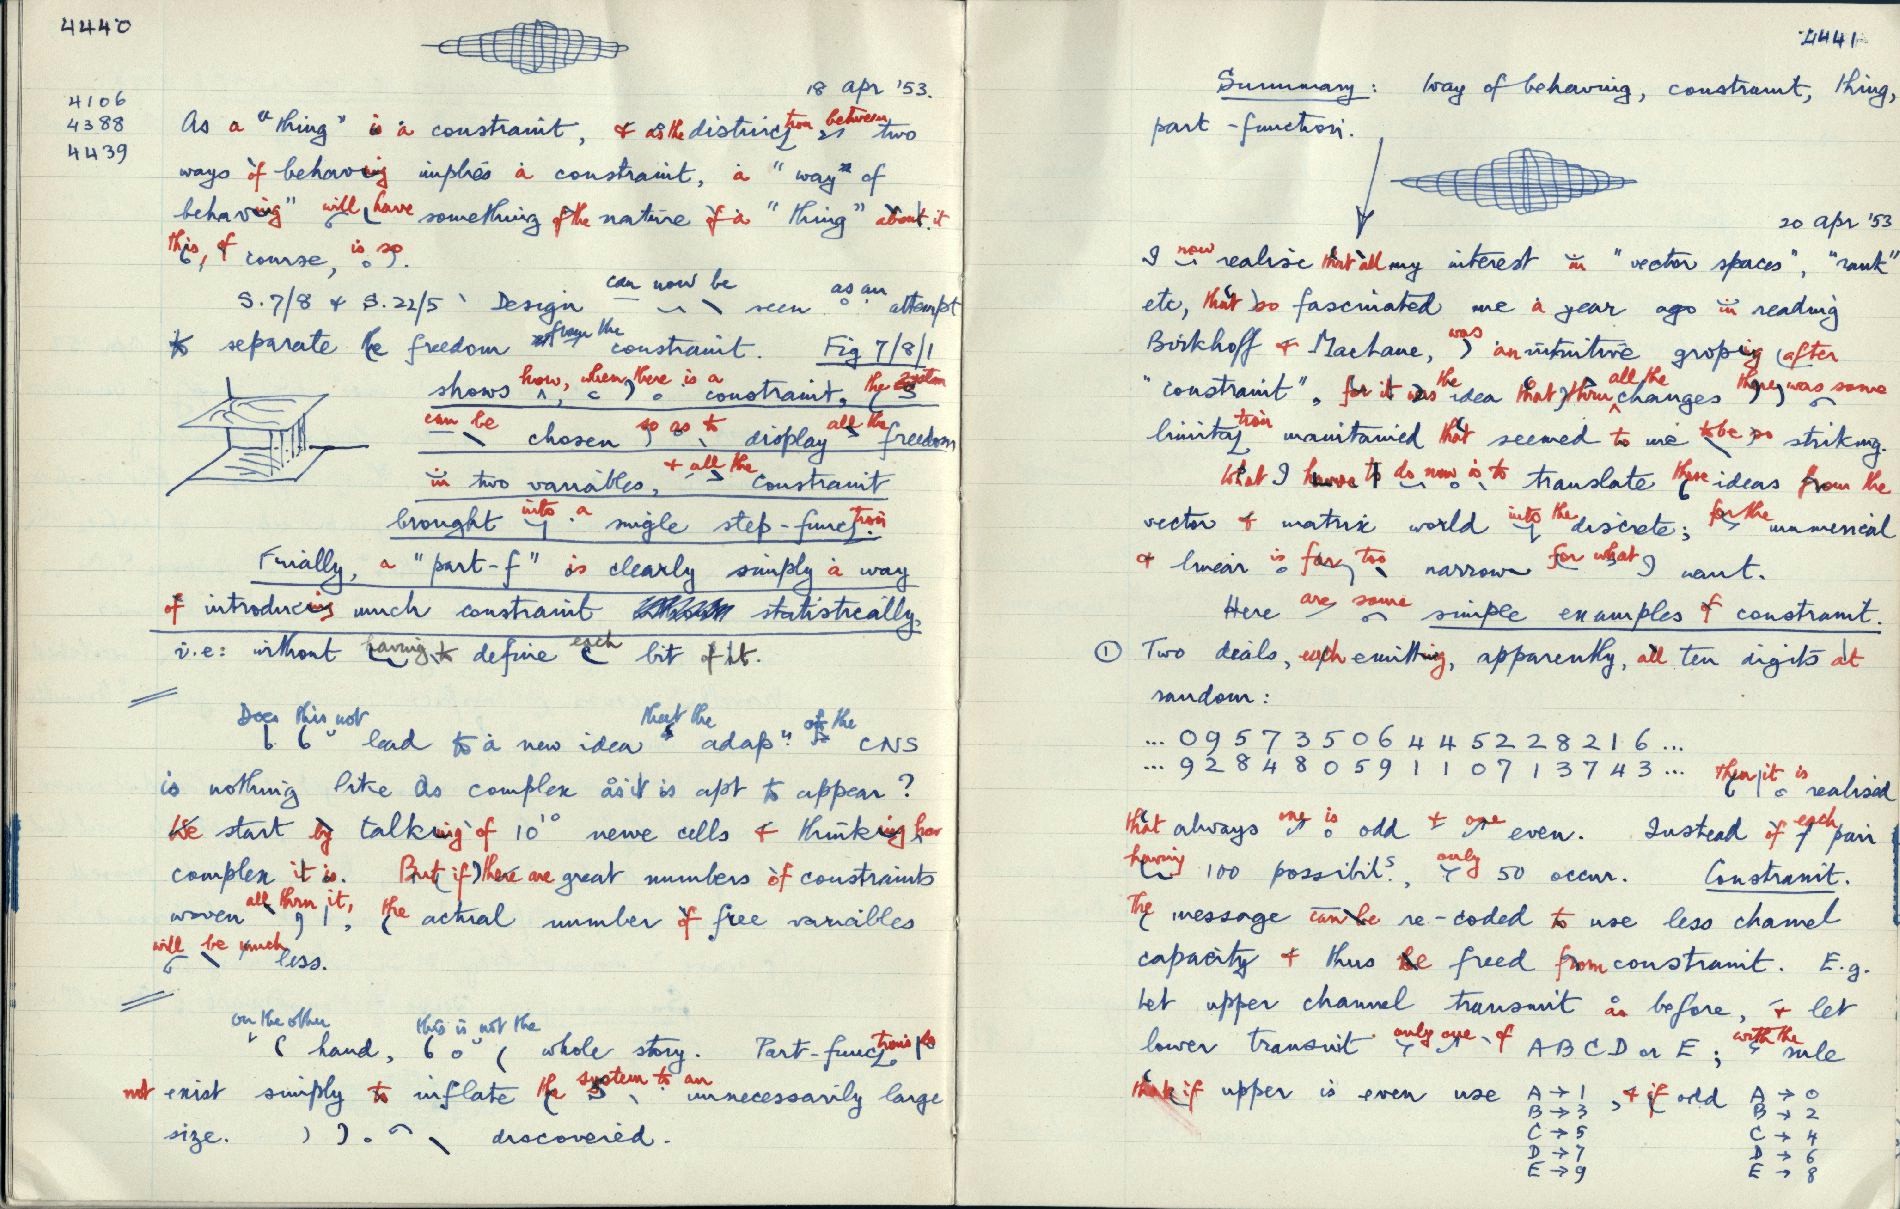 4440
18 Apr '53.
4106
4388
4439
As a "thing" is a constraint, & as the distinction between two
ways of behaving implies a constraint, a "way of
behaving" will have something of the nature of a "thing" about it.
this, of course, is so.
S. 7/8 & S. 22/5 Design can now be seen as an attempt
to separate the freedom from the constraint. Fig 7/8/1
shows how, when there is a constraint, the system
can be chosen so as to display all the freedom
in two variables, & all the constraint
brought into a single step-function.
Finally, a "part-f" is clearly simply a way
of introducing much constraint statistically,
i.e: without having to define each bit of it.
Does this not lead to a new idea that the adap" of the CNS
is nothing like as complex as it is apt to appear?
We start by talking of 10¹⁰ nerve cells & thinking how
complex it is. But if there are great numbers of constraints
woven all thru it, the actual number of free variables
will be much less.
on the other hand, this is not the whole story. Part-functions do
not exist simply to inflate the system to an unnecessarily large
size. discovered.
4441
Summary: Way of behaving, constraint, thing,
part-function.
20 Apr '53
I now realise that all my interest in "vector spaces", "rank"
etc, that so fascinated me a year ago in reading
Birkhoff & Maclane, was an intuitive groping after
"constraint", for it was the idea that thru all the changes there was some
limitation maintained that seemed to me to be so striking.
What I have to do now is to translate these ideas from the
vector & matrix world into the discrete; for the numerical
& linear is far too narrow for what I want.
Here are some simple examples of constraint.
① Two dials, each emitting, apparently, all ten digits at
random:
... 0 9 5 7 3 5 0 6 4 4 5 2 2 8 2 1 6 ...
... 9 2 8 4 8 0 5 9 1 1 0 7 1 3 7 4 3 ...
then it is realised
that always one is odd & one even. Instead of each pair
having 100 possibilˢ., only 50 occur. Constraint.
The message can be re-coded to use less channel
capacity & thus be freed from constraint. E.g.
Let upper channel transmit as before, & let
lower transmit only one of A B C D or E; with the rule
that if upper is even use A → 1, & if odd A → 0
B → 3 B → 2
C → 5 C → 4
D → 7 D → 6
E → 9 E → 8